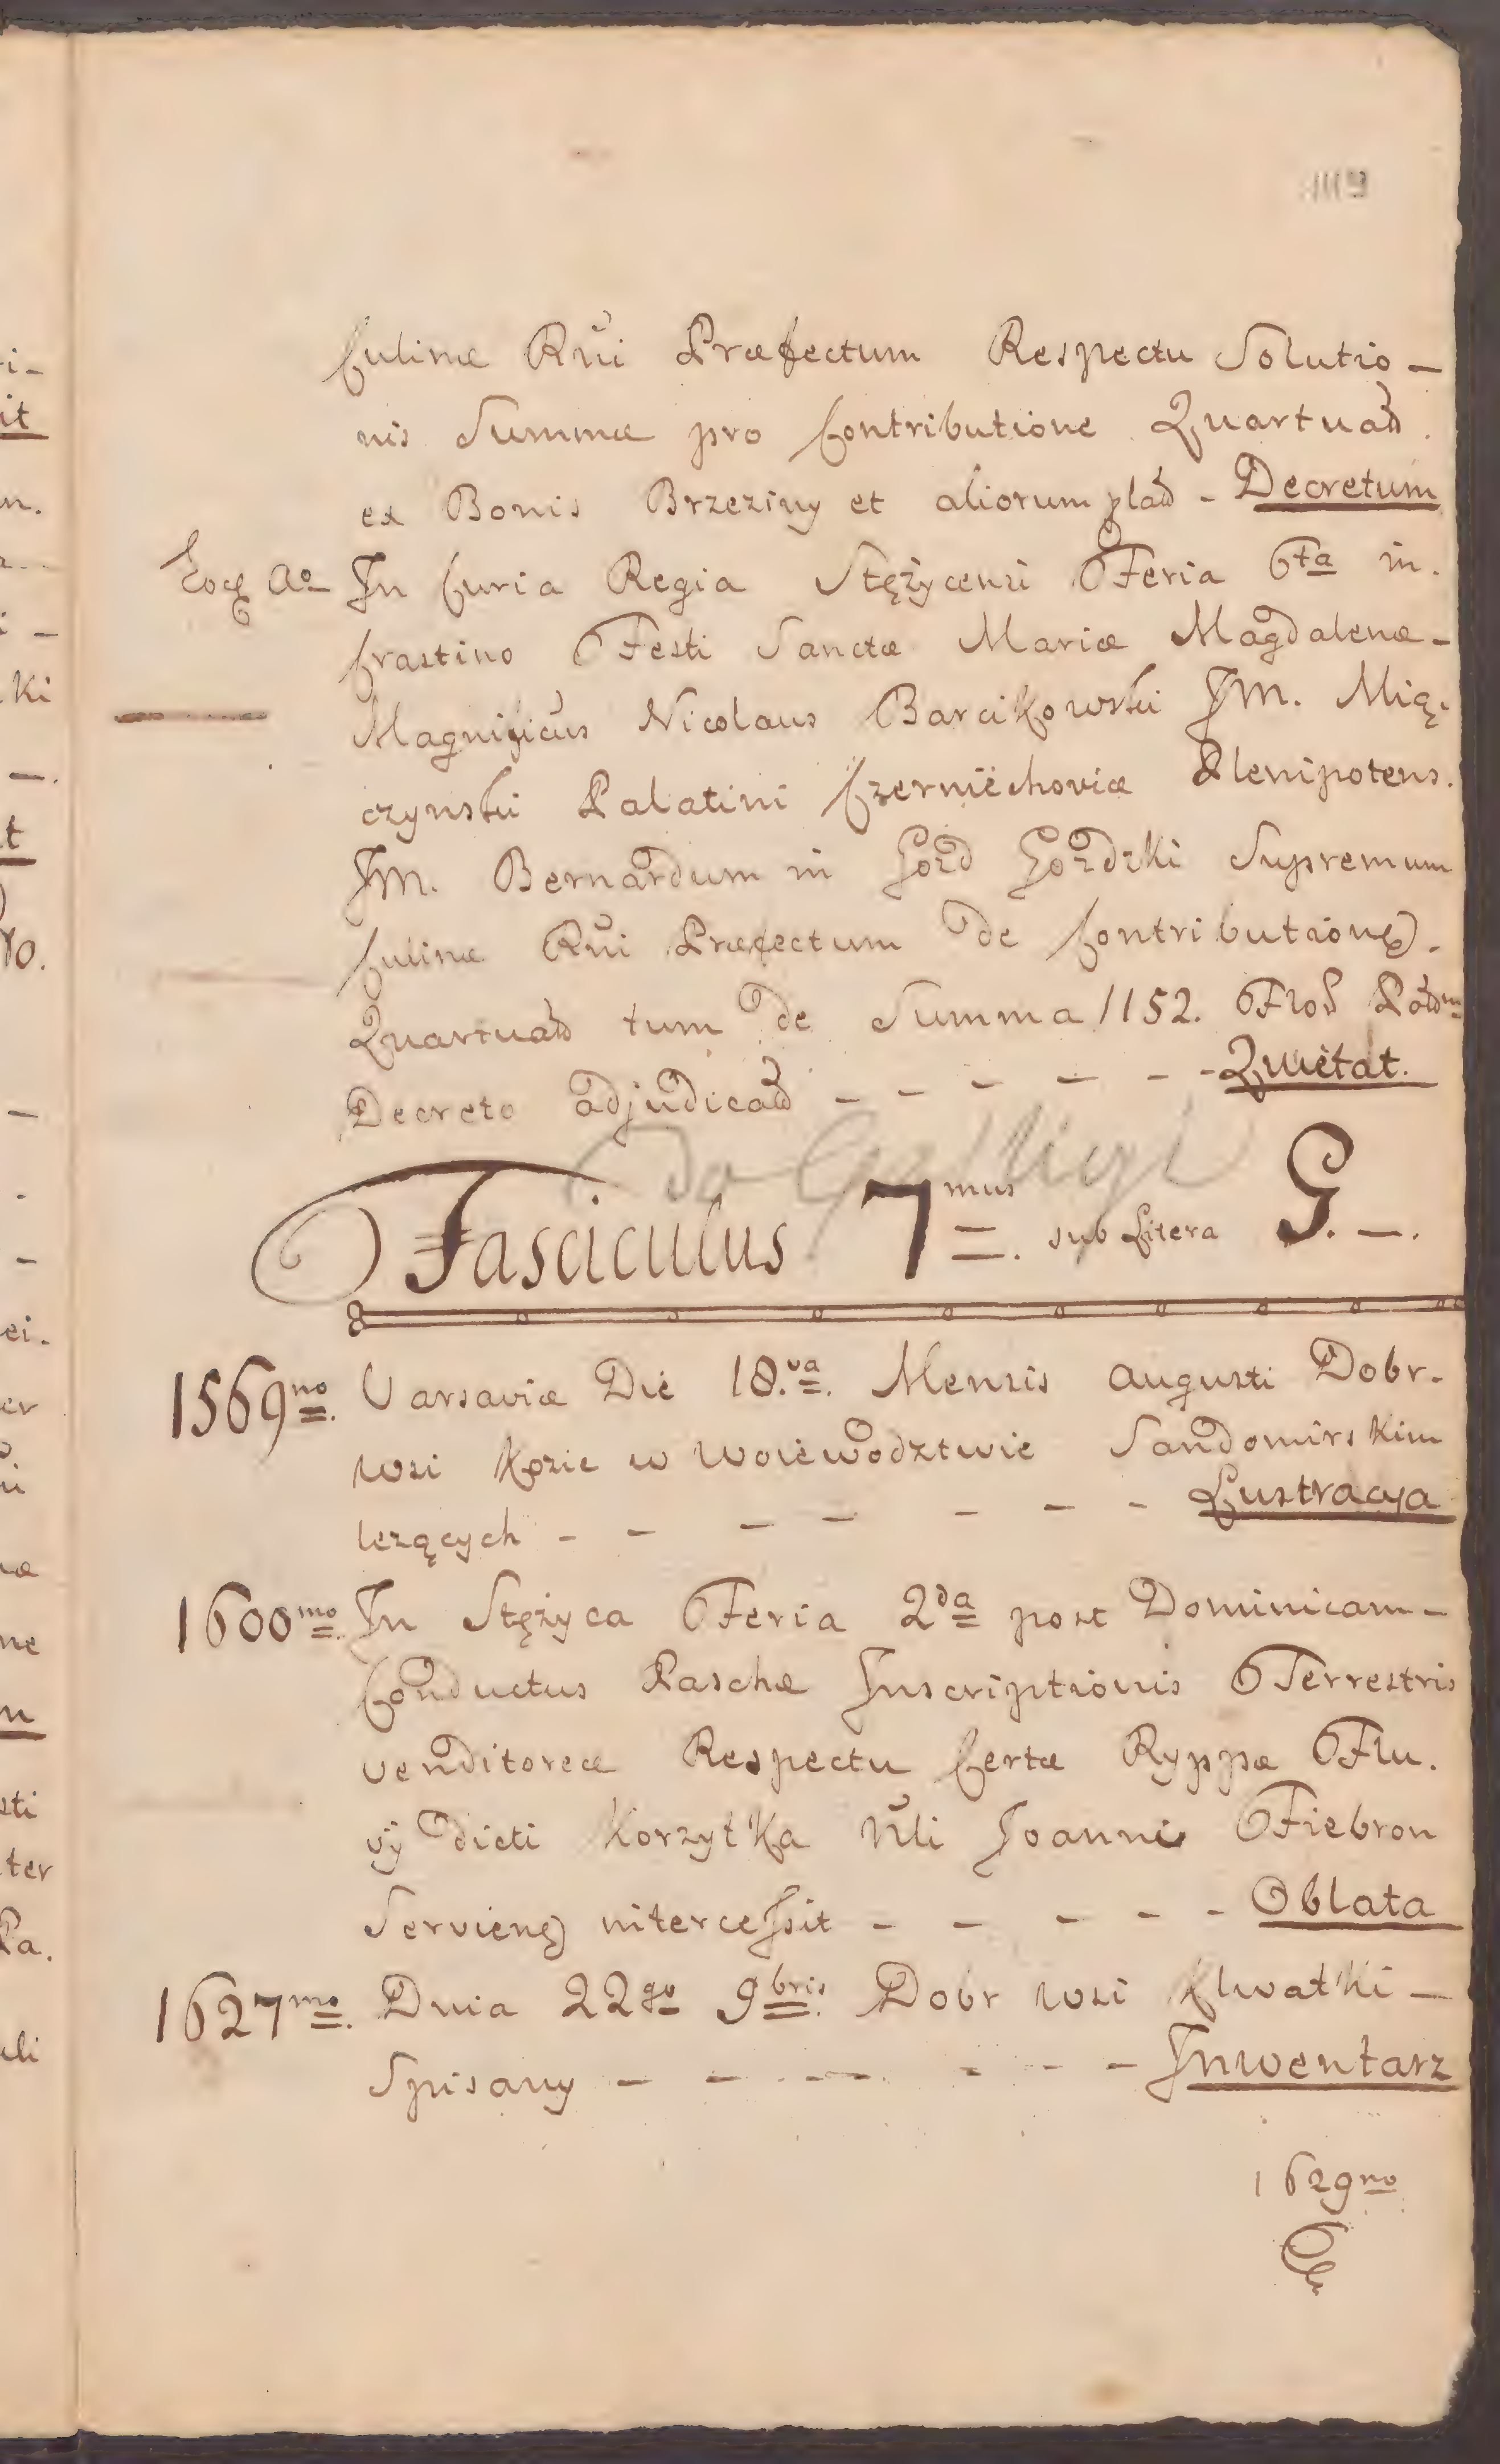 Culinæ Rñi Præfectum Respectu Solutio-
nis Summæ pro Contributione Quartuad
ex Bonis Brzeziny et aliorum plad - Decretum
Eoq Ao In Curia Regia Stężycensi Feria 6ta in.
Crastino Festi Sanctæ Mariæ Magdalenæ-
Magnificus Nicolaus Barcikowski JM. Mią.
czynski Palatini Czerniechoviæ Plenipotens.
JM. Bernardum in Gozd Gozdzki Supremum
Culinæ Rñi Præfectum de Contribution
Quartuad tum de Summa 1152. Flor
Decreto adjudicad - - - - - - Quietat.
Fasciculus 7mus. sub Litera G. -.
1569no. Varsaviæ Die 18.va. Mensis Augusti Dobr.
wsi Kozie w Woiewodztwie Sandomirskim
lezących - - - - - - - Lustracya
1600mo. In Stężyca Feria 2da post Dominicam-
Conductus Paschæ Inscriptionis Terrestris
venditoreæ Respectu Certæ Ryppæ Flu.
vij dicti Korzytka Nli Joanni Fiebron
Servien intercessit - - - - - Oblata
1627mo. Dnia 22go 9bris. Dobr wsi Chwatki -
Spisany - - - - - - - Inwentarz
1629no